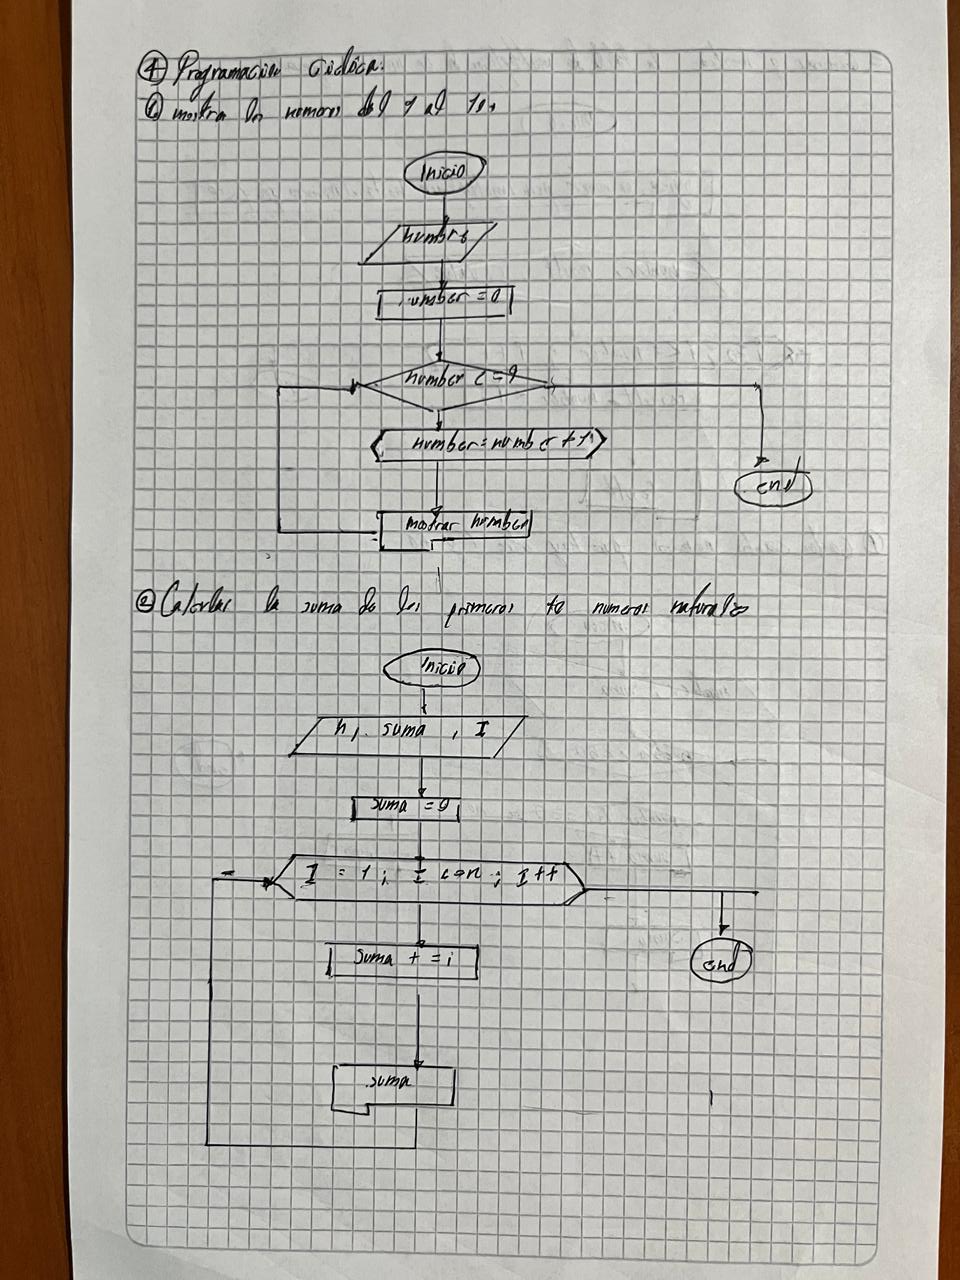 ④ Programación Ciclica.
① mostra los numeros del 1 al 10.
Inicio
number
number = 0
number <= 9
number = number + 1
end
mostrar number
② Calcular la suma de los primeros 10 numeros naturales
Inicio
n, suma , I
suma = 0
I = 1 ; I <= n ; I++
suma + = i
end
suma